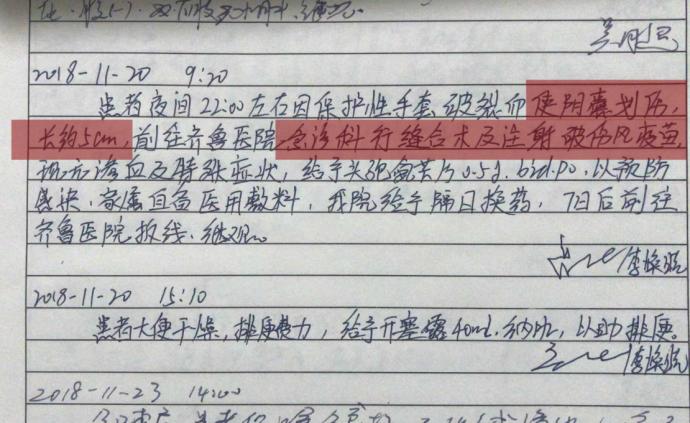 2018-11-20 9:20
患者夜间22:00左右因保护性手套破裂而使阴囊划伤,
长约5cm,前往齐鲁医院急诊科行缝合术及注射破伤风疫苗,
现无渗血及特殊症状,给予头孢氨苄片0.5g.bid.po,以预防
感染,家属自备医用敷料,我院给予隔日换药,7日后前往
齐鲁医院拆线.继观。
2018-11-20 15:10
患者大便干燥,排便费力,给予开塞露40mL.纳肛,以助排便。
2018-11-23 14:00